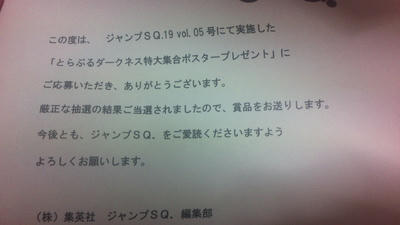 この度は、 ジャンプSQ.19 vol.05号にて実施した
「とらぶるダークネス特大集合ポスタープレゼント」に
ご応募いただき、ありがとうございます。
厳正な抽選の結果ご当選されましたので、賞品をお送りします。
今後とも、ジャンプSQ．をご愛読くださいますよう
よろしくお願いします。
（株）集英社 ジャンプSQ．編集部